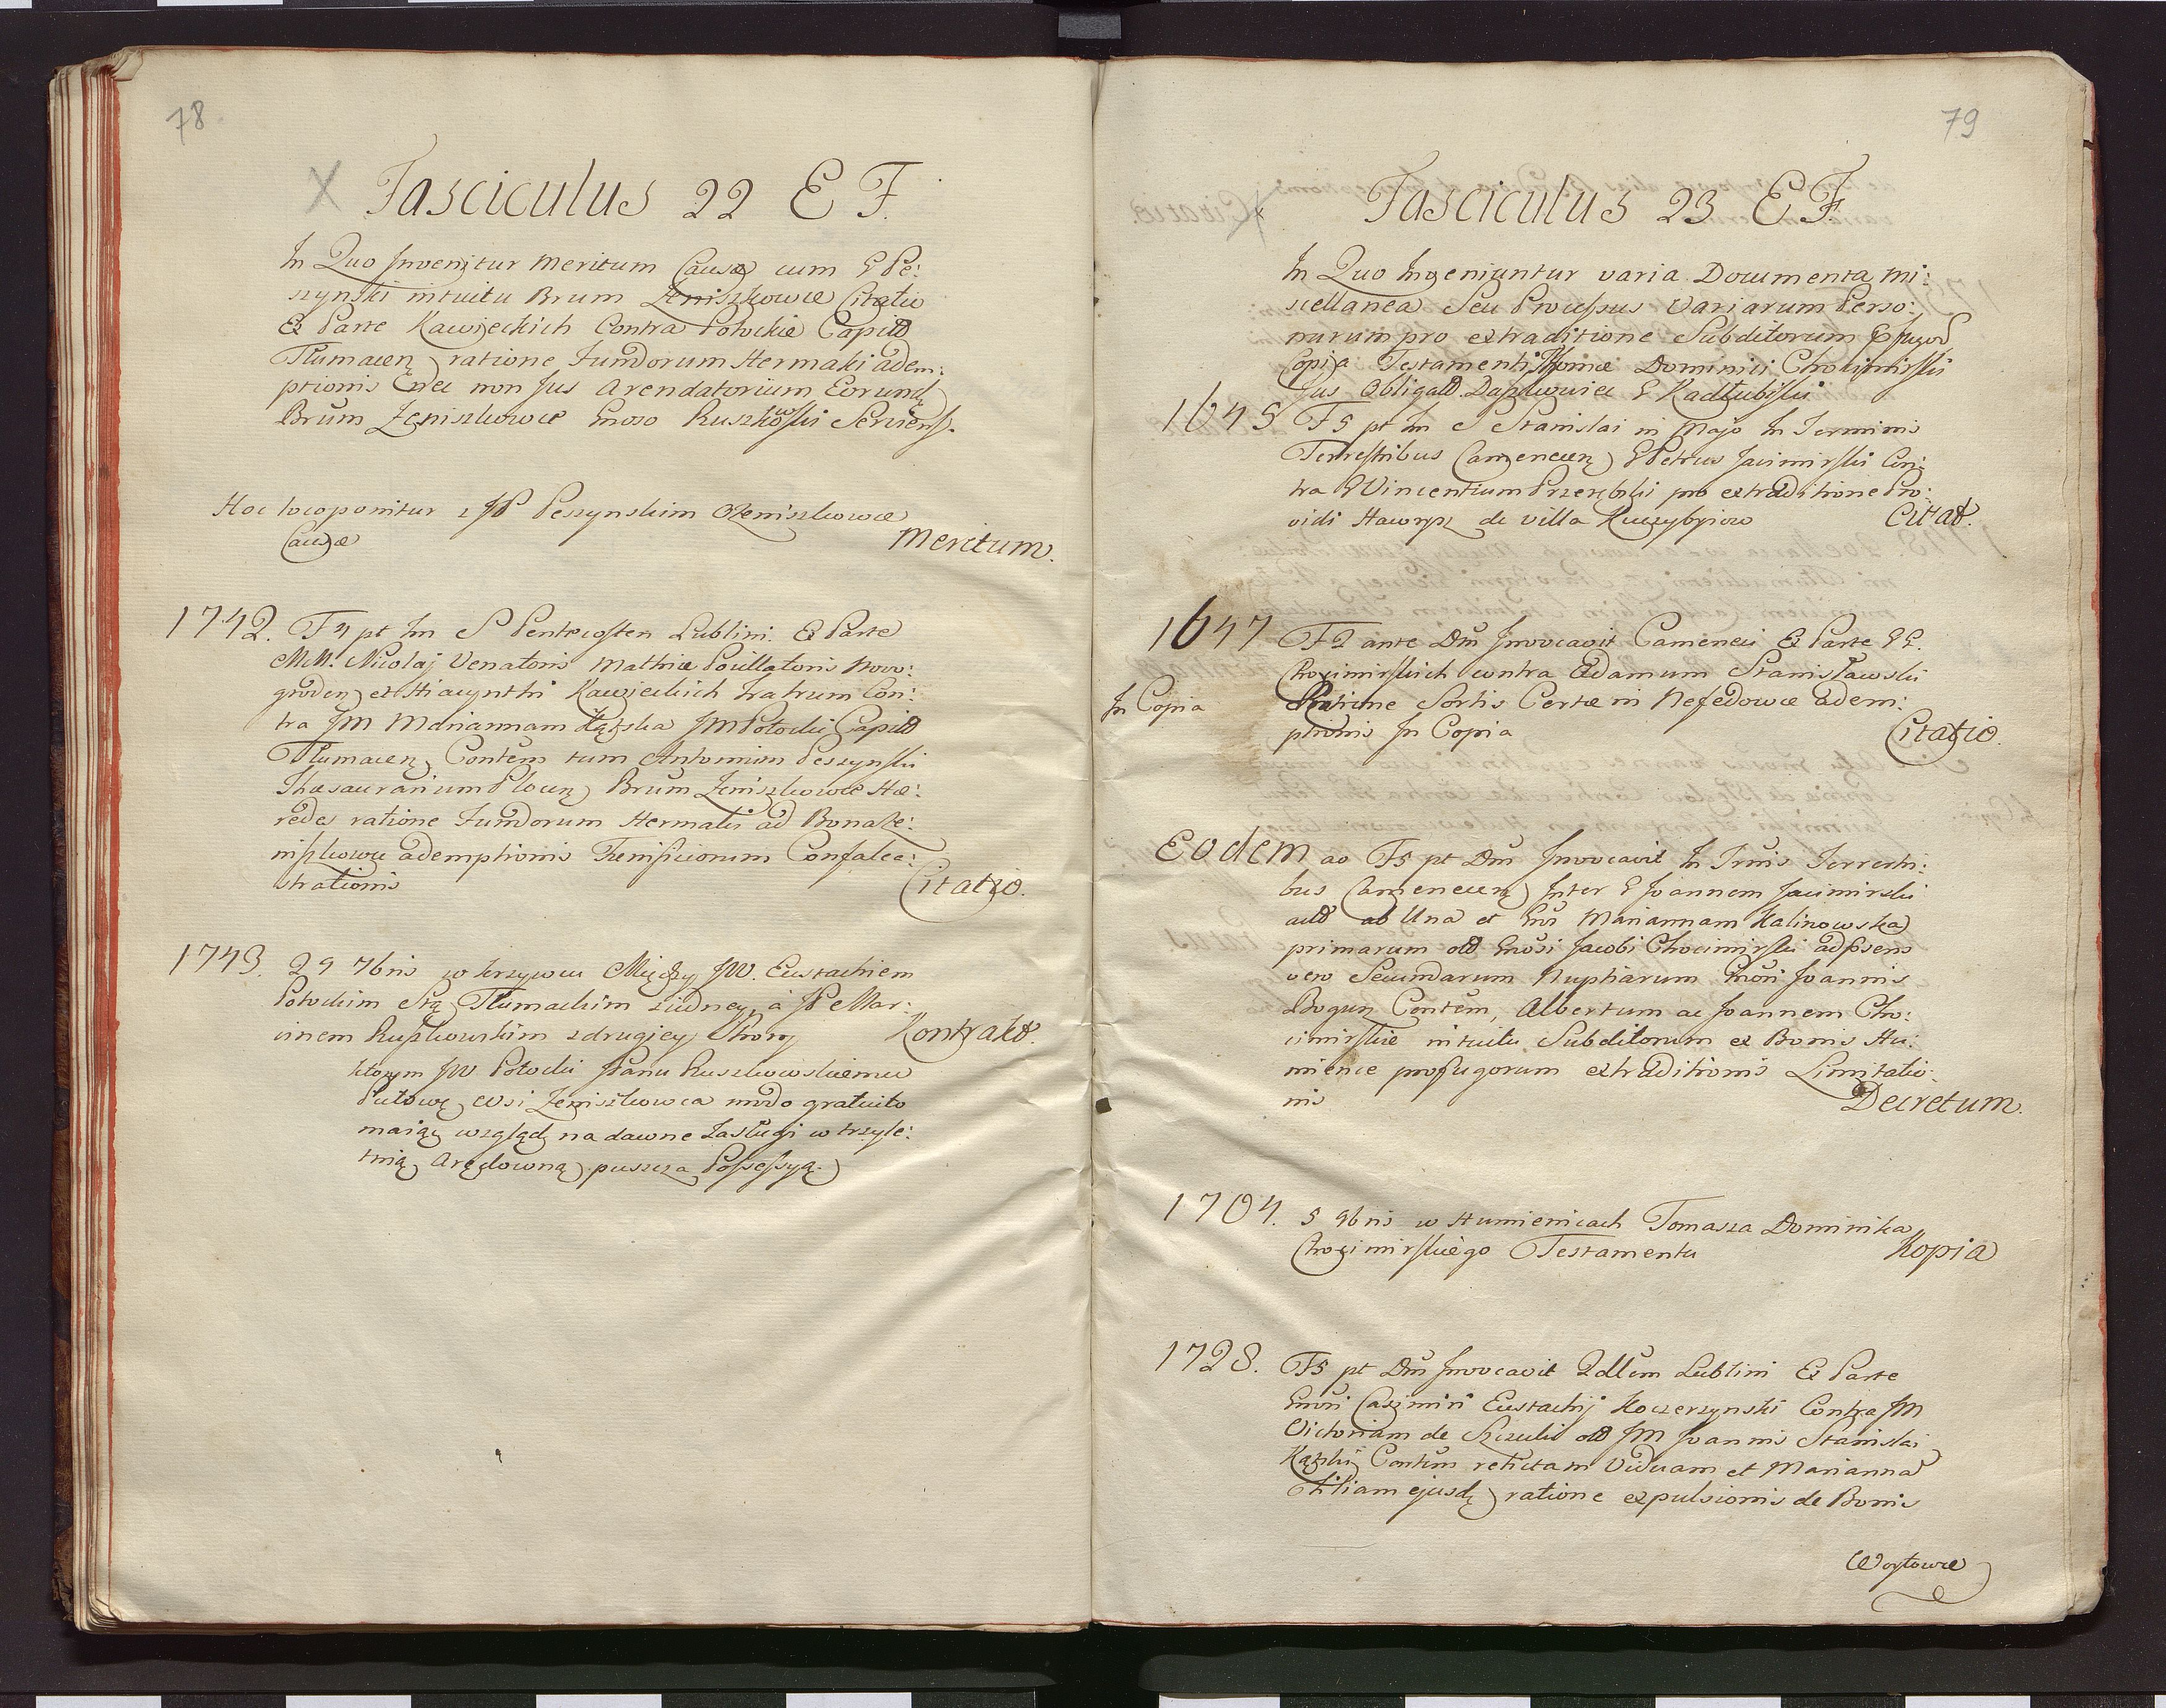 78
X Fasciculus 22 E F.
In Quo Invenitur Meritum Causæ cum G Pe:
szynski intuitu Brum Zeniszkowce Citatio
Ex Parte Kawieckich Contra Potockie Capitt
Tłumacen ratione Fundorum Hermaki adem:
ptionis Enec non Jus Arendatorium Eorund
Brum Zeniszkowce Gnoso Ruszkowski Serviens.
Hoc loco ponitur z JP Peszynskim o Zeniszkowce
Causæ Meritum.
1742. F4 pt Im S Pentecosten Lublini. Ex Parte
MM. Nicolaj Venatoris Mathiæ Pocillatoris Novo:
groden et Hiacynthi Kawieckich Fratrum Con:
tra JM Mariannam Kątska JM Potocki Capitt
Tłumacen Contem tum Antonium Peszynski
Thesaurarium Plocen Brum Zeniszkowce Hæ:
redes ratione Fundorum Hermatis ad Bona Ze:
niszkowce ademptionis Transmissionum Confalca:
strationis Citatio.
1743. 29 7bris w Krzywcu Między JW. Eustachiem
Potockim Stą Tłumackim z iedney, à JP Mar:
cinem Ruszkowskim z drugiey Strony Kontrakt.
ktorym JW Potocki JPanu Ruszkowskiemu
Putowę Wsi Zeniszkowca modo gratuito
maiąc wzgląd na dawne Zasługi w trzyle:
tnią Arędowną puszcza Possessyą.
79
x Fasciculus 23 E F.
In Quo Inveniuntur varia Documenta Mi:
scellanea Seu Processus Variarum Perso:
narum pro extraditione Subditorum Profugor
Copia Testamenti Thomæ Dominici Chocimirski
Jus Obligatt. Daszkowiec G Kadłubiski
1645 F5 pt Im S Stanislai in Majo In Terminis
Terrestribus Camenecen G Petrus Jacimirski Con:
tra G Vincentium Przerębski pro extraditione Pro:
vidi Hawrysz de villa Kuczybyiow Citat.
1647 F2 ante Dm Invocavit Camenecii Ex Parte GG.
Chocimirskich contra Adamum Stanisławski
In Copia Ratione Sortis Certæ in Nefedowce adem:
ptionis In Copia Citatio.
Eodem ao F5 pt Dm Invocavit In Trmis Terrestri:
bus Camenecen Inter G Joannem Jacimirski
actt ab Una et Gnn Mariannam Kalinowska
primarum ott Gnosi Jacobi Chocimirski ad psens
vero Secundarum Nuptiarum Gnosi Joannis
Bogusz Contem, Albertum ac Joannem Cho:
cimirskie intuitu Subditorum ex Bonis Hu:
mience profugorum extraditionis Limitatio:
nis Decretum.
1704. 5 9bris w Humienicach Tomasza Dominika
Chocimirskiego Testamentu Kopia
1728. F5 pt Dm Invocavit Qdllem Lublini Ex Parte
Gnosi Casimiri Eustachij Koczerzynski Contra JM
Victoriam de Szczuki ott JM Joannis Stanislai
Kątski Contem relictam Viduam et Marianna
Filiam ejusd ratione expulsionis de Bonis
Woytowce